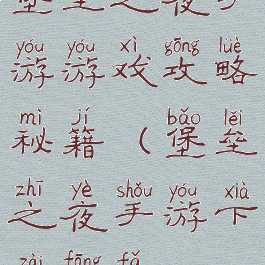 yóu yóu xì gōng lüè
游游戏攻略
mì jí bǎo lěi
秘籍（堡垒
zhī yè shǒu yóu xià
之夜手游下
zài fāng fǎ